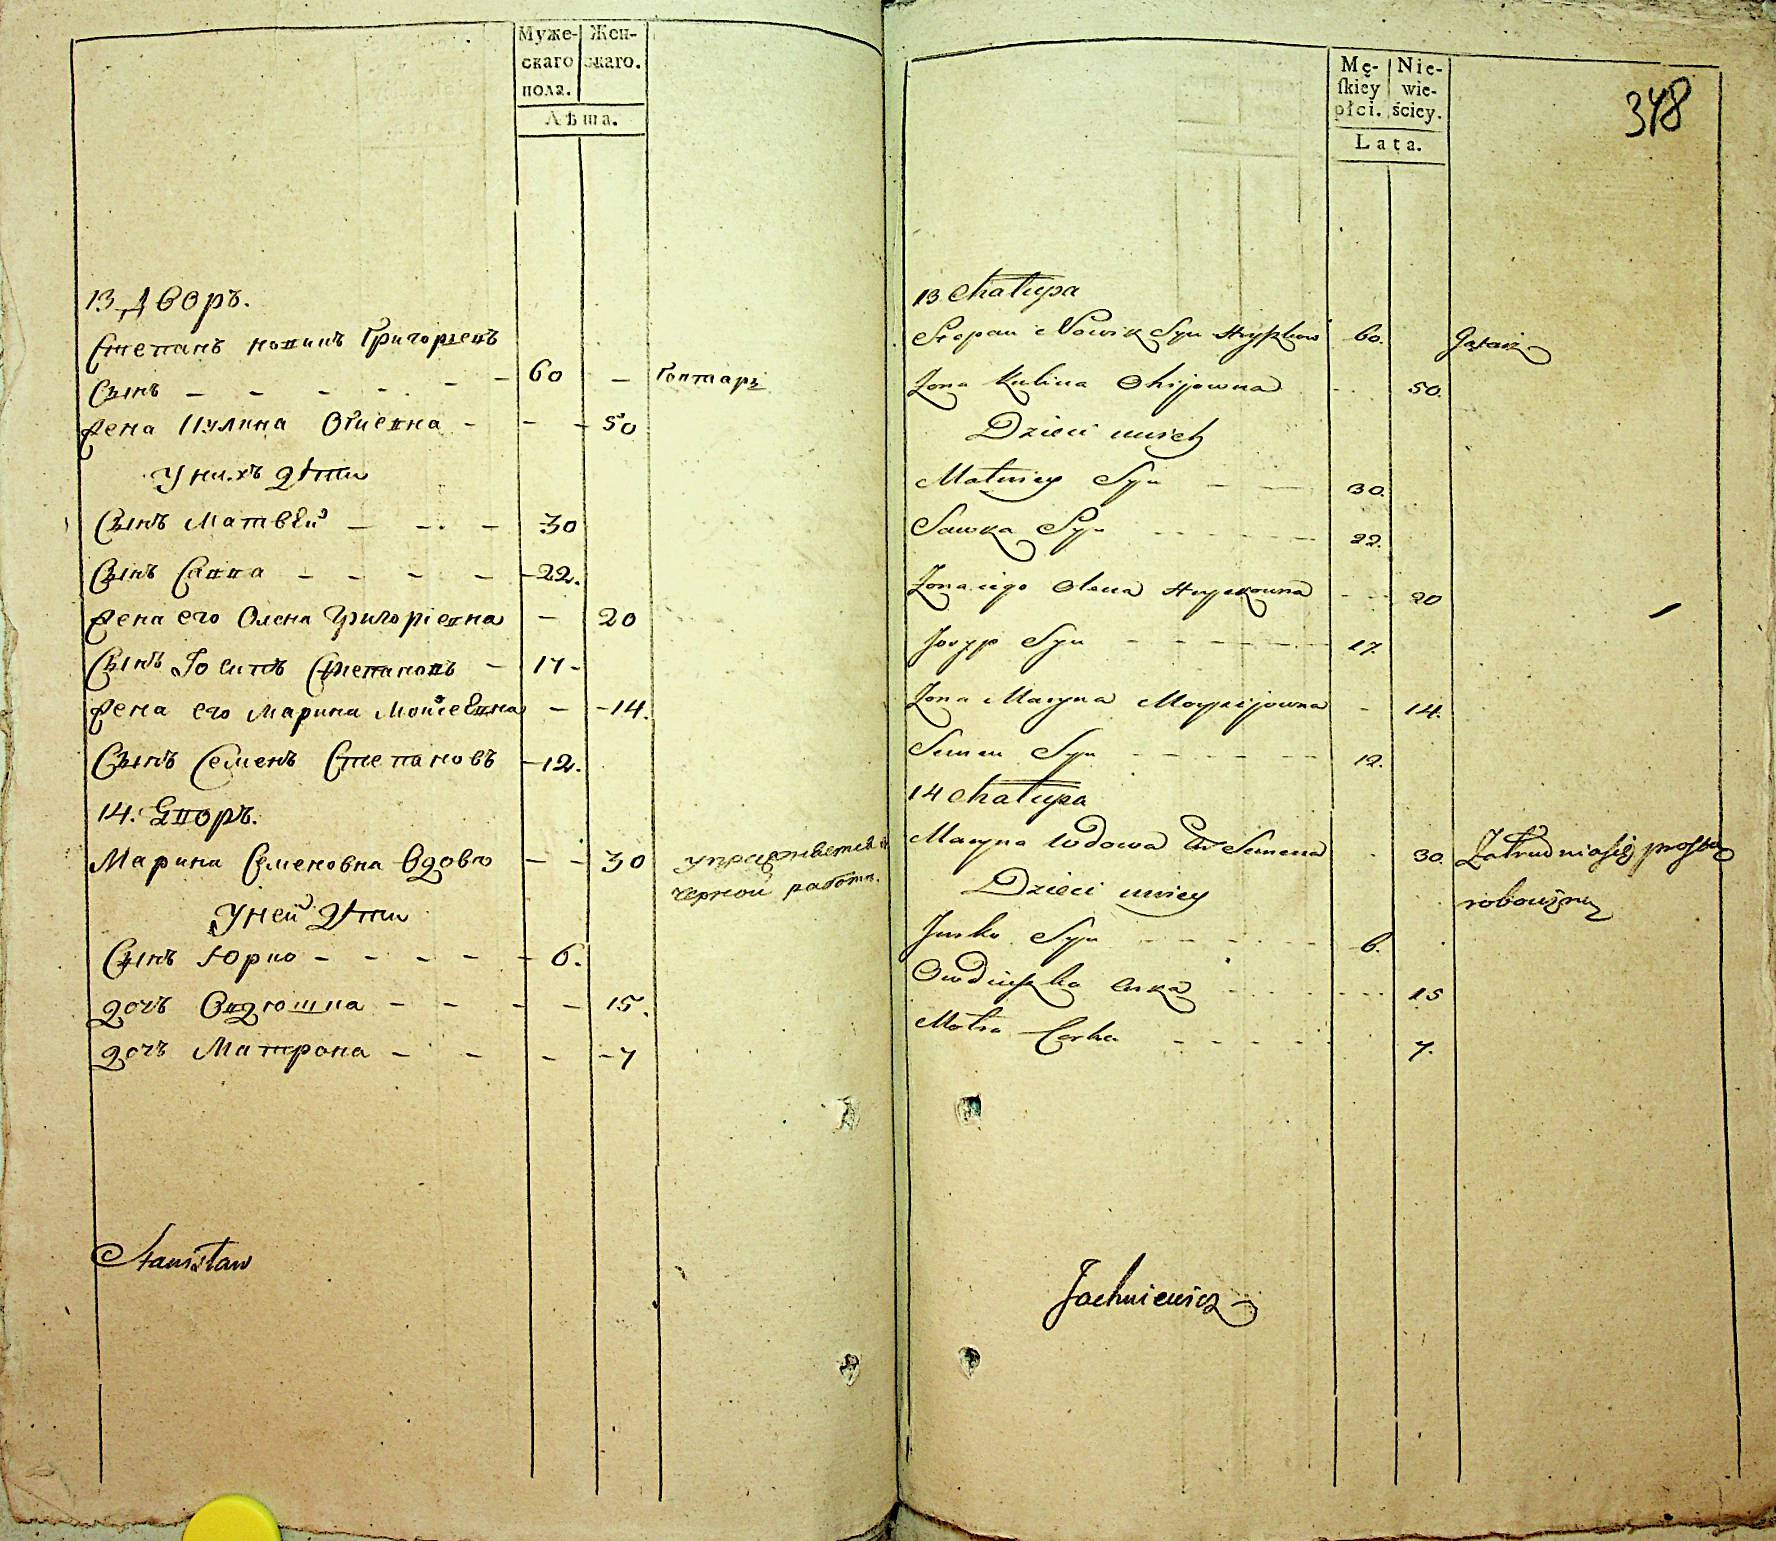 Муже- Жен-
скаго скаго.
пола.
Лѣта.
13 Дворъ.
Степанъ новикъ Григорьевъ
Сынъ - - - - - - 60 - Гонтарь
Жена Кулина Огиевна - - - 50
У нихъ дѣти
Сынъ Матвѣй - - - 30
Сынъ Савва - - - - - 22.
Жена его Олена Григоріевна - 20
Сынъ Іосипъ Степановъ - 17 -
Жена его Марина Мойсеѣвна - - 14.
Сынъ Семенъ Степановъ - 12.
14. Дворъ.
Марина Семеновна Вдова - - 30 упражняется в
черной работе.
У ней дѣти
Сынъ Юрко - - - - - 6.
дочь Овдюшка - - - - 15.
дочь Матрона - - - - 7
Stanisław
Mę- Nie-
skiey wie-
płci. ściey.
Lata.
348
13 Chałupa
Stepan Nowik Syn Hryszkow 60. Gątarz
Żona Kulina Ohijowna - - 50.
Dzieci unich
Matwiey Syn - - 30.
Sawka Syn - - - - - - 22.
Żona iego Olena Hryckowna - - - 20
Josyp Syn - - - - - - - 17.
Żona Maryna Moysijowna - 14.
Semen Syn - - - - - 12.
14 Chałupa
Maryna Wdowa Semena - 30. Zatrudniasię prostą
robocizną
Dzieci uniey
Jurko Syn - - - - - 6.
Owdiuszka Curka - - - - - - 15
Motra Corka - - - - 7.
Jachniewicz